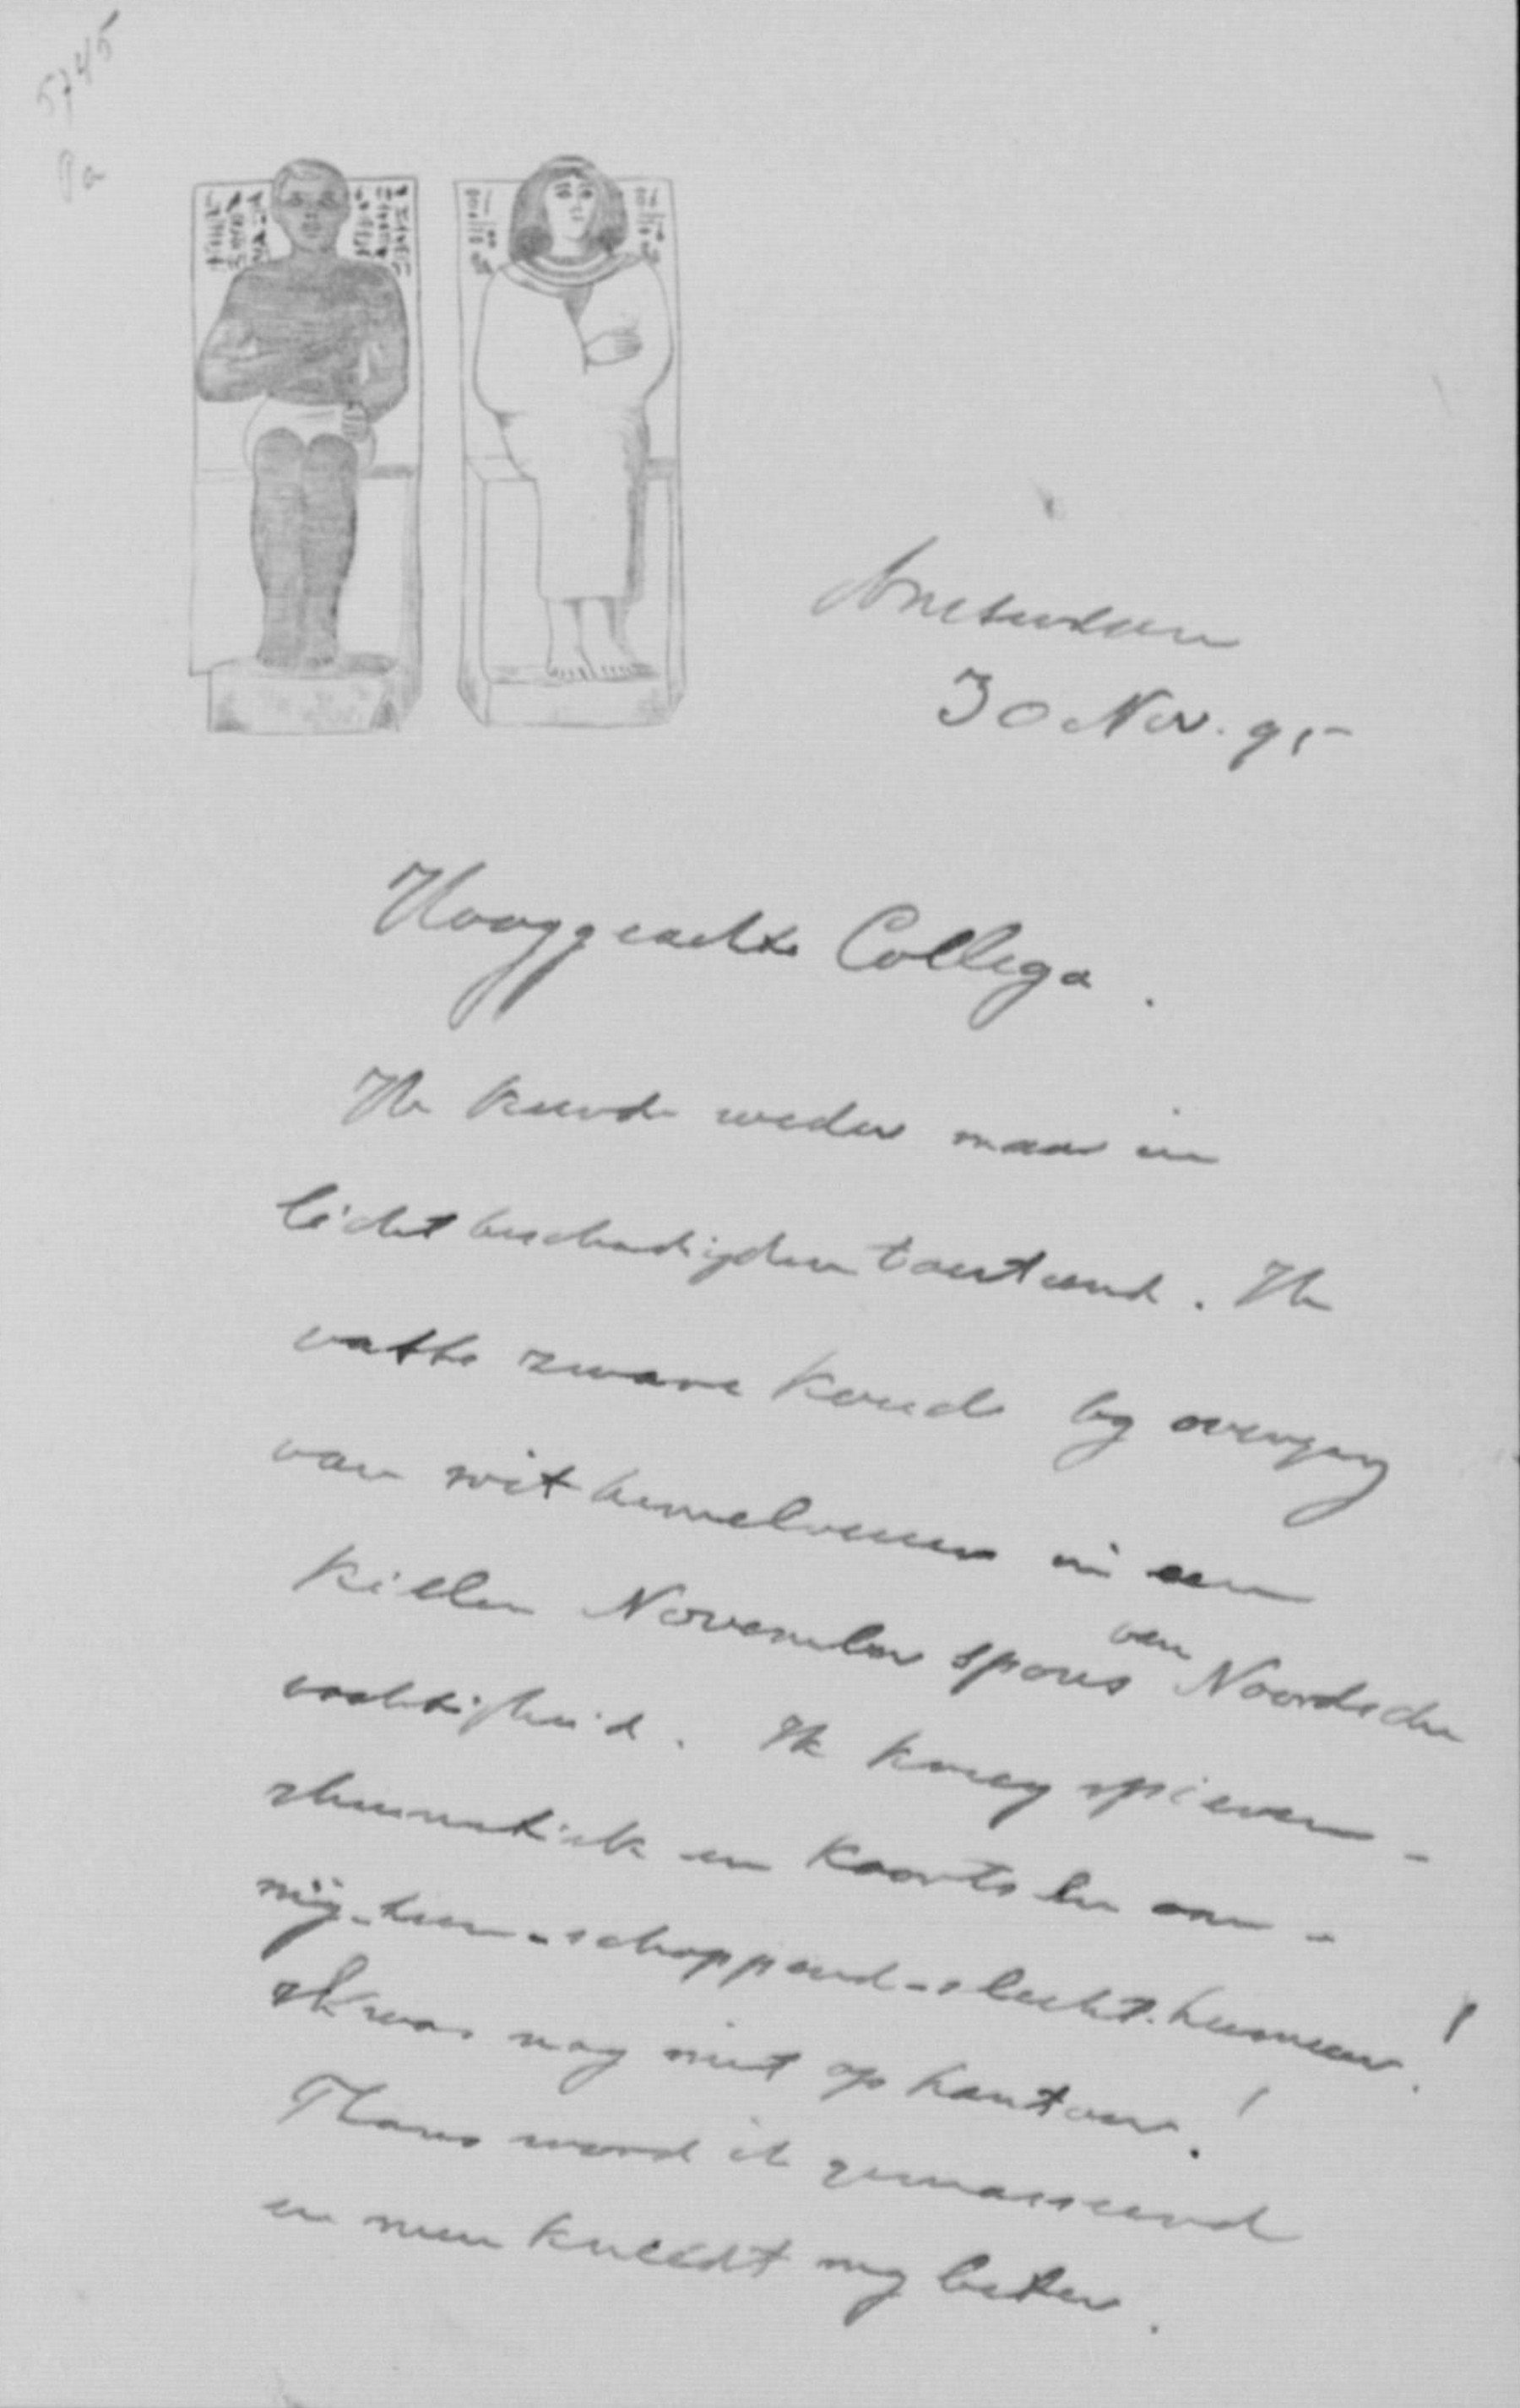 5745
Pa
Amsterdam
30 Nov. 95
Hooggeachte Collega.
Ik keerde weder maar in
licht beschadigden toestand. Ik
vatte zware koude bij overgang
van wit hemelvuur in een
killen November spons van Noordsche
vochtigheid. Ik kreeg spieren-
rhumatiek en koorts en om-
mij-heen-schoppend-slecht-humeur!
Ik was nog niet op kantoor!
Thans word ik gemasseerd
en men kneedt mij beter.